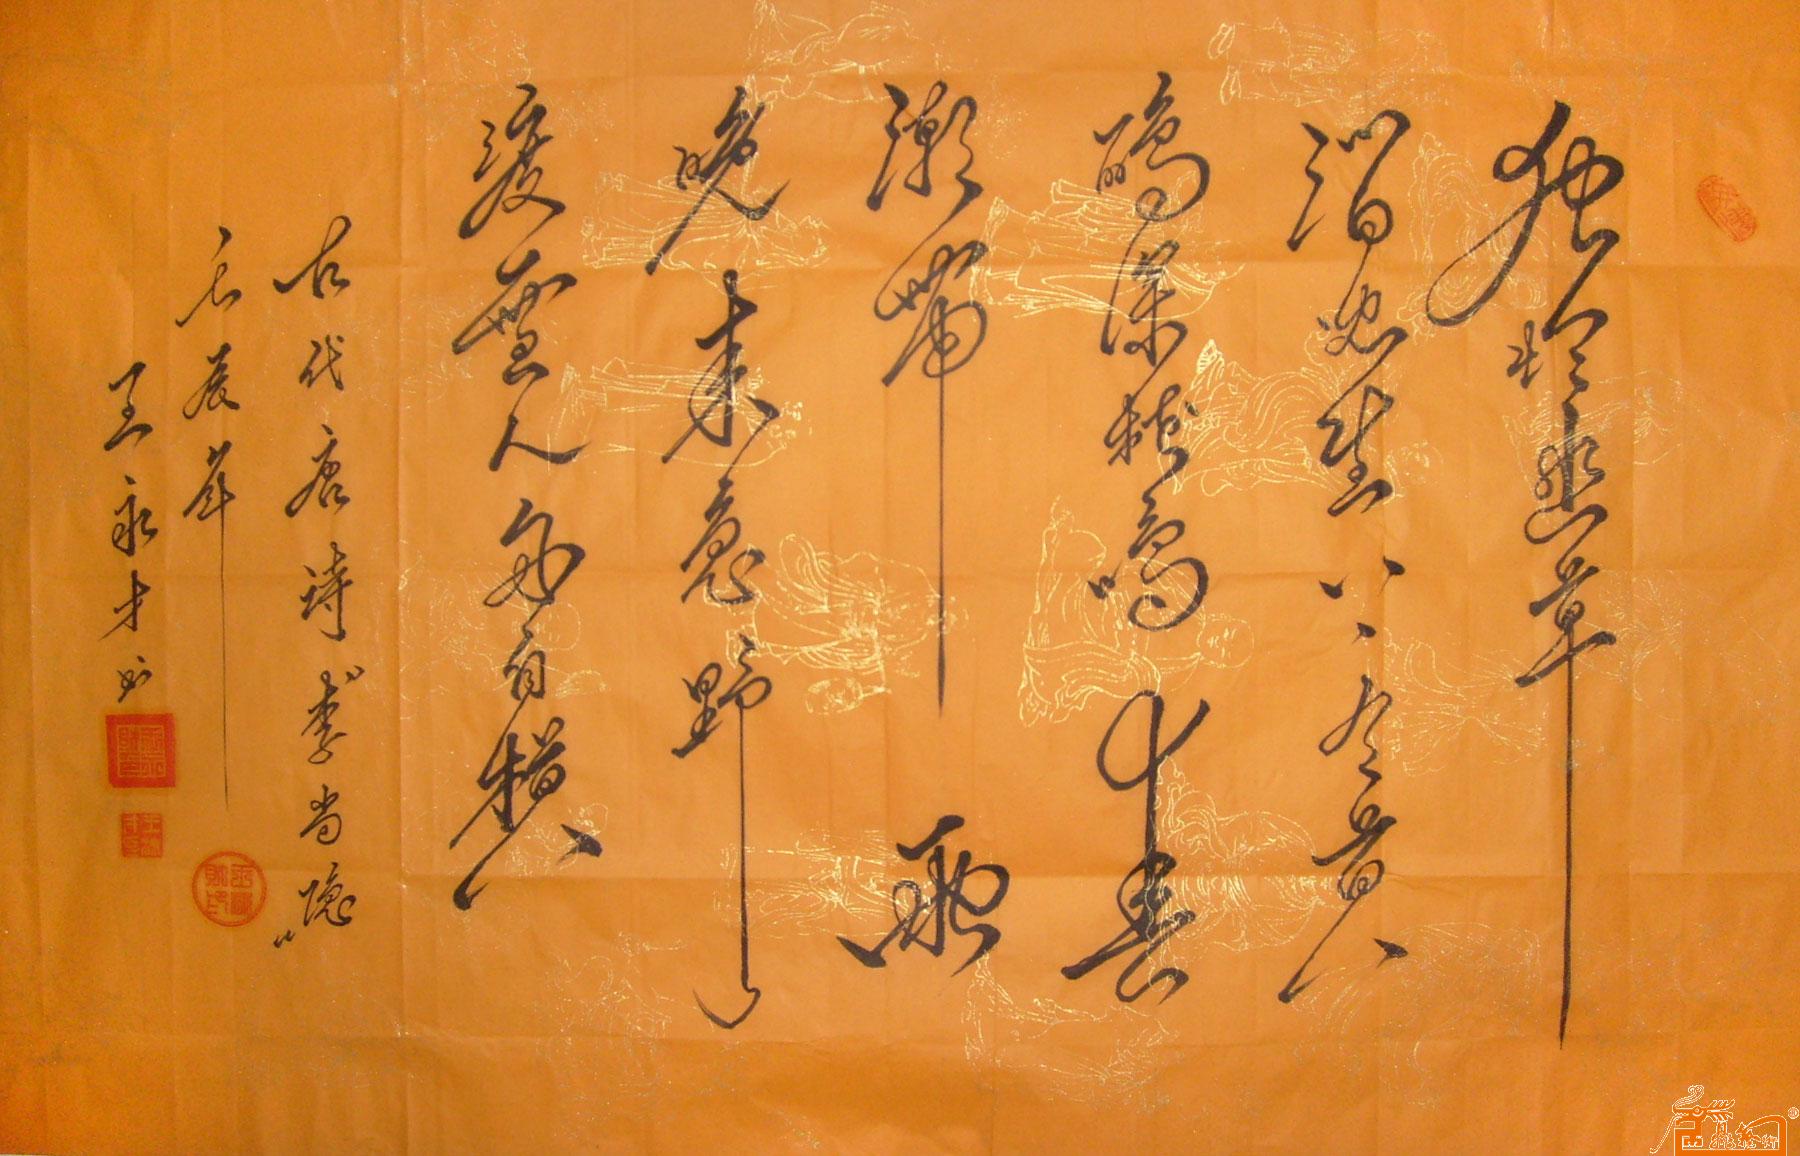 独怜幽草
涧边生上有黄
鹂深树鸣春
潮带雨
晚来急野
渡無人舟自横
古代唐诗李尚隐
壬辰年
王永才书